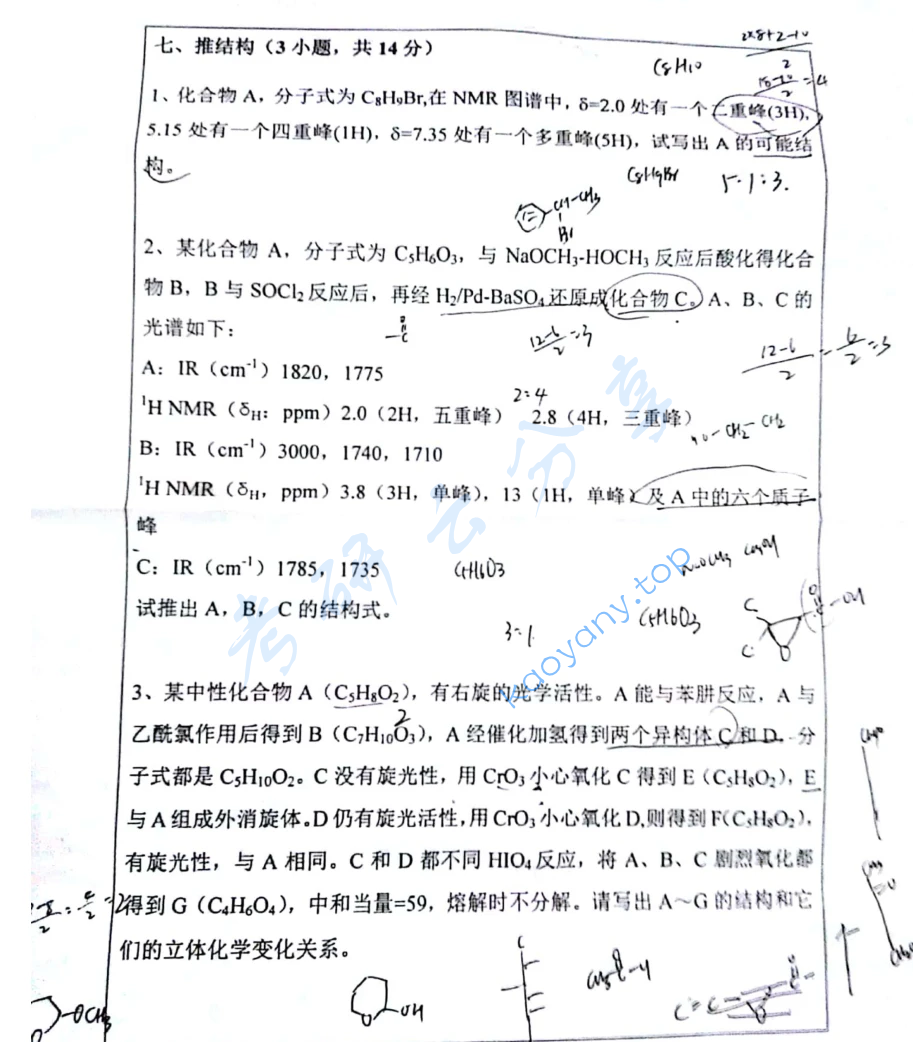 七、推结构（3 小题，共 14 分）
2×8+2-10
2
C8H10
1、化合物 A，分子式为 C₈H₉Br,在 NMR 图谱中，δ=2.0 处有一个二重峰(3H)，
5.15 处有一个四重峰(1H)，δ=7.35 处有一个多重峰(5H)，试写出 A 的可能结
构。
C8H9Br 5:1:3.
CH-CH3
Br
2、某化合物 A，分子式为 C₅H₆O₃，与 NaOCH₃-HOCH₃ 反应后酸化得化合
物 B，B 与 SOCl₂ 反应后，再经 H₂/Pd-BaSO₄ 还原成化合物 C。A、B、C 的
光谱如下：
12-6/2=3
12-6/2=6/2=3
A：IR（cm⁻¹）1820，1775
2:4
¹H NMR（δH：ppm）2.0（2H，五重峰） 2.8（4H，三重峰）
-CH2-CH2
B：IR（cm⁻¹）3000，1740，1710
¹H NMR（δH，ppm）3.8（3H，单峰），13（1H，单峰）及 A 中的六个质子
峰
C：IR（cm⁻¹）1785，1735
C5H6O3
试推出 A，B，C 的结构式。
3=1.
C5H6O3
C
O
C
O
-OH
考研云分享
kaoyany.top
3、某中性化合物 A（C₅H₈O₂），有右旋的光学活性。A 能与苯肼反应，A 与
乙酰氯作用后得到 B（C₇H₁₀O₃），A 经催化加氢得到两个异构体 C 和 D。分
2
子式都是 C₅H₁₀O₂。C 没有旋光性，用 CrO₃ 小心氧化 C 得到 E（C₅H₈O₂），E
与 A 组成外消旋体。D 仍有旋光活性，用 CrO₃ 小心氧化 D,则得到 F（C₅H₈O₂），
有旋光性，与 A 相同。C 和 D 都不同 HIO₄ 反应，将 A、B、C 剧烈氧化都
得到 G（C₄H₆O₄），中和当量=59，熔解时不分解。请写出 A～G 的结构和它
们的立体化学变化关系。
-OCH3
O
OH